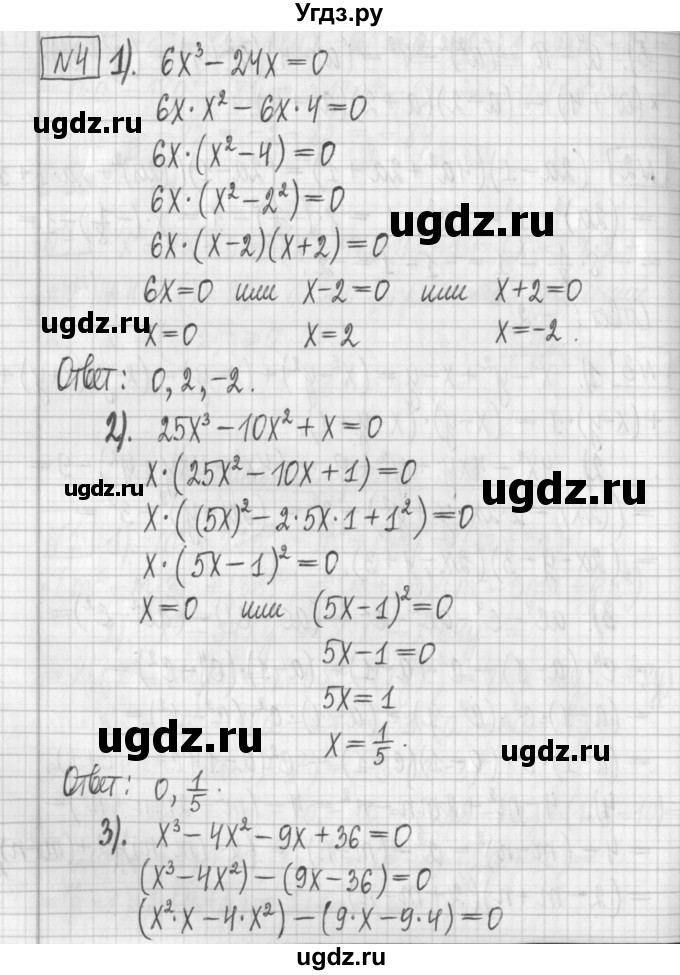 Угдз.ру
№4 1). 6x³ − 24x = 0
6x · x² − 6x · 4 = 0
ugdz.ru
6x · (x² − 4) = 0
6x · (x² − 2²) = 0
ugdz.ru
6x · (x − 2)(x + 2) = 0
6x = 0 или x − 2 = 0 или x + 2 = 0
ugdz.ru
x = 0 x = 2 x = −2.
Ответ: 0, 2, −2.
2). 25x³ − 10x² + x = 0
x · (25x² − 10x + 1) = 0
ugdz.ru ugdz.ru
x · ((5x)² − 2 · 5x · 1 + 1²) = 0
x · (5x − 1)² = 0
x = 0 или (5x − 1)² = 0
5x − 1 = 0
5x = 1
ugdz.ru ugdz.ru
x = 1/5.
Ответ: 0, 1/5.
3). x³ − 4x² − 9x + 36 = 0
(x³ − 4x²) − (9x − 36) = 0
(x² · x − 4 · x²) − (9 · x − 9 · 4) = 0
ugdz.ru